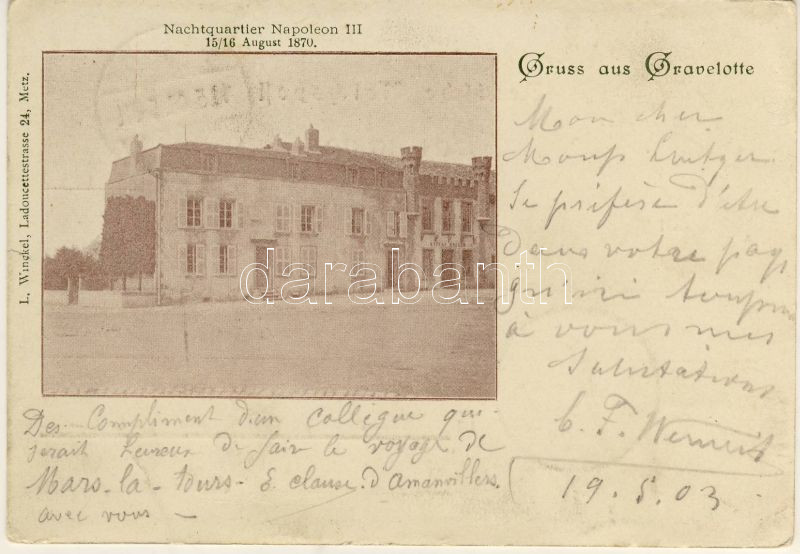 Nachtquartier Napoleon III
15/16 August 1870.
Gruss aus Gravelotte
L. Winckel, Ladoucettestrasse 24, Metz.
Mon cher
Je préfère d'être
dans votre pays
qu'ici toujours
à vous mes
Salutations
C. F.
19. 5. 03
Des Compliment d'un collègue qui
serait heureux de fair le voyage de
Mars-la-tours- & d'Amanvillers
avec vous —
darabanth